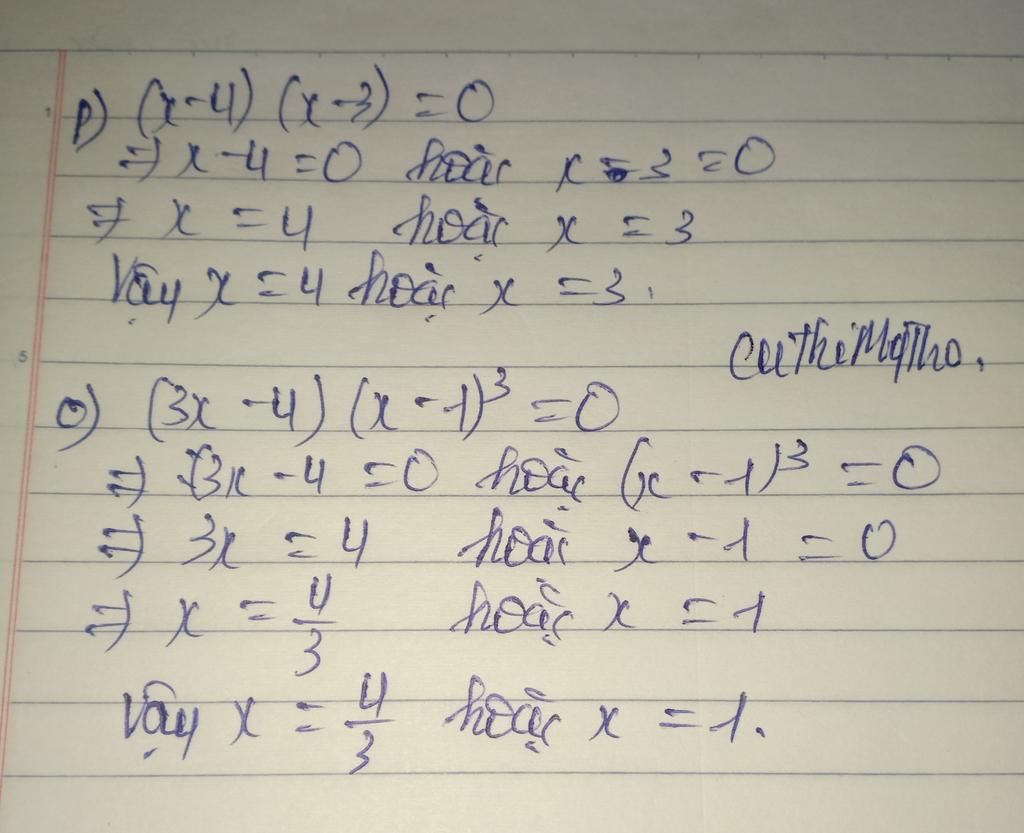 p) (x-4) (x-3) = 0
=> x-4 = 0 hoặc x-3 = 0
=> x = 4 hoặc x = 3
Vậy x = 4 hoặc x = 3.
o) (3x -4) (x -1)³ = 0
=> 3x -4 = 0 hoặc (x -1)³ = 0
=> 3x = 4 hoặc x -1 = 0
=> x = 4/3 hoặc x = 1
Vậy x = 4/3 hoặc x = 1.